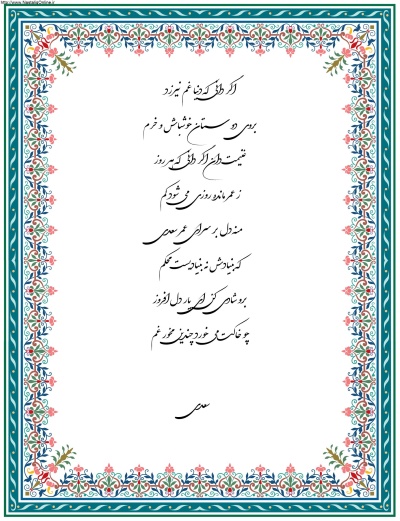 http://www.NastaliqOnline.ir
اگر دانی که دنیا غم نیرزد
بروی دوستان خوشباش و خرم
غنیمت دان اگر دانی که هر روز
ز عمر مانده روزی می شود کم
منه دل بر سرای عمر سعدی
که بنیادش نه بنیادیست محکم
برو شادی کن ای یار دل افروز
چو خاکت می خورد چندین مخور غم
سعدی